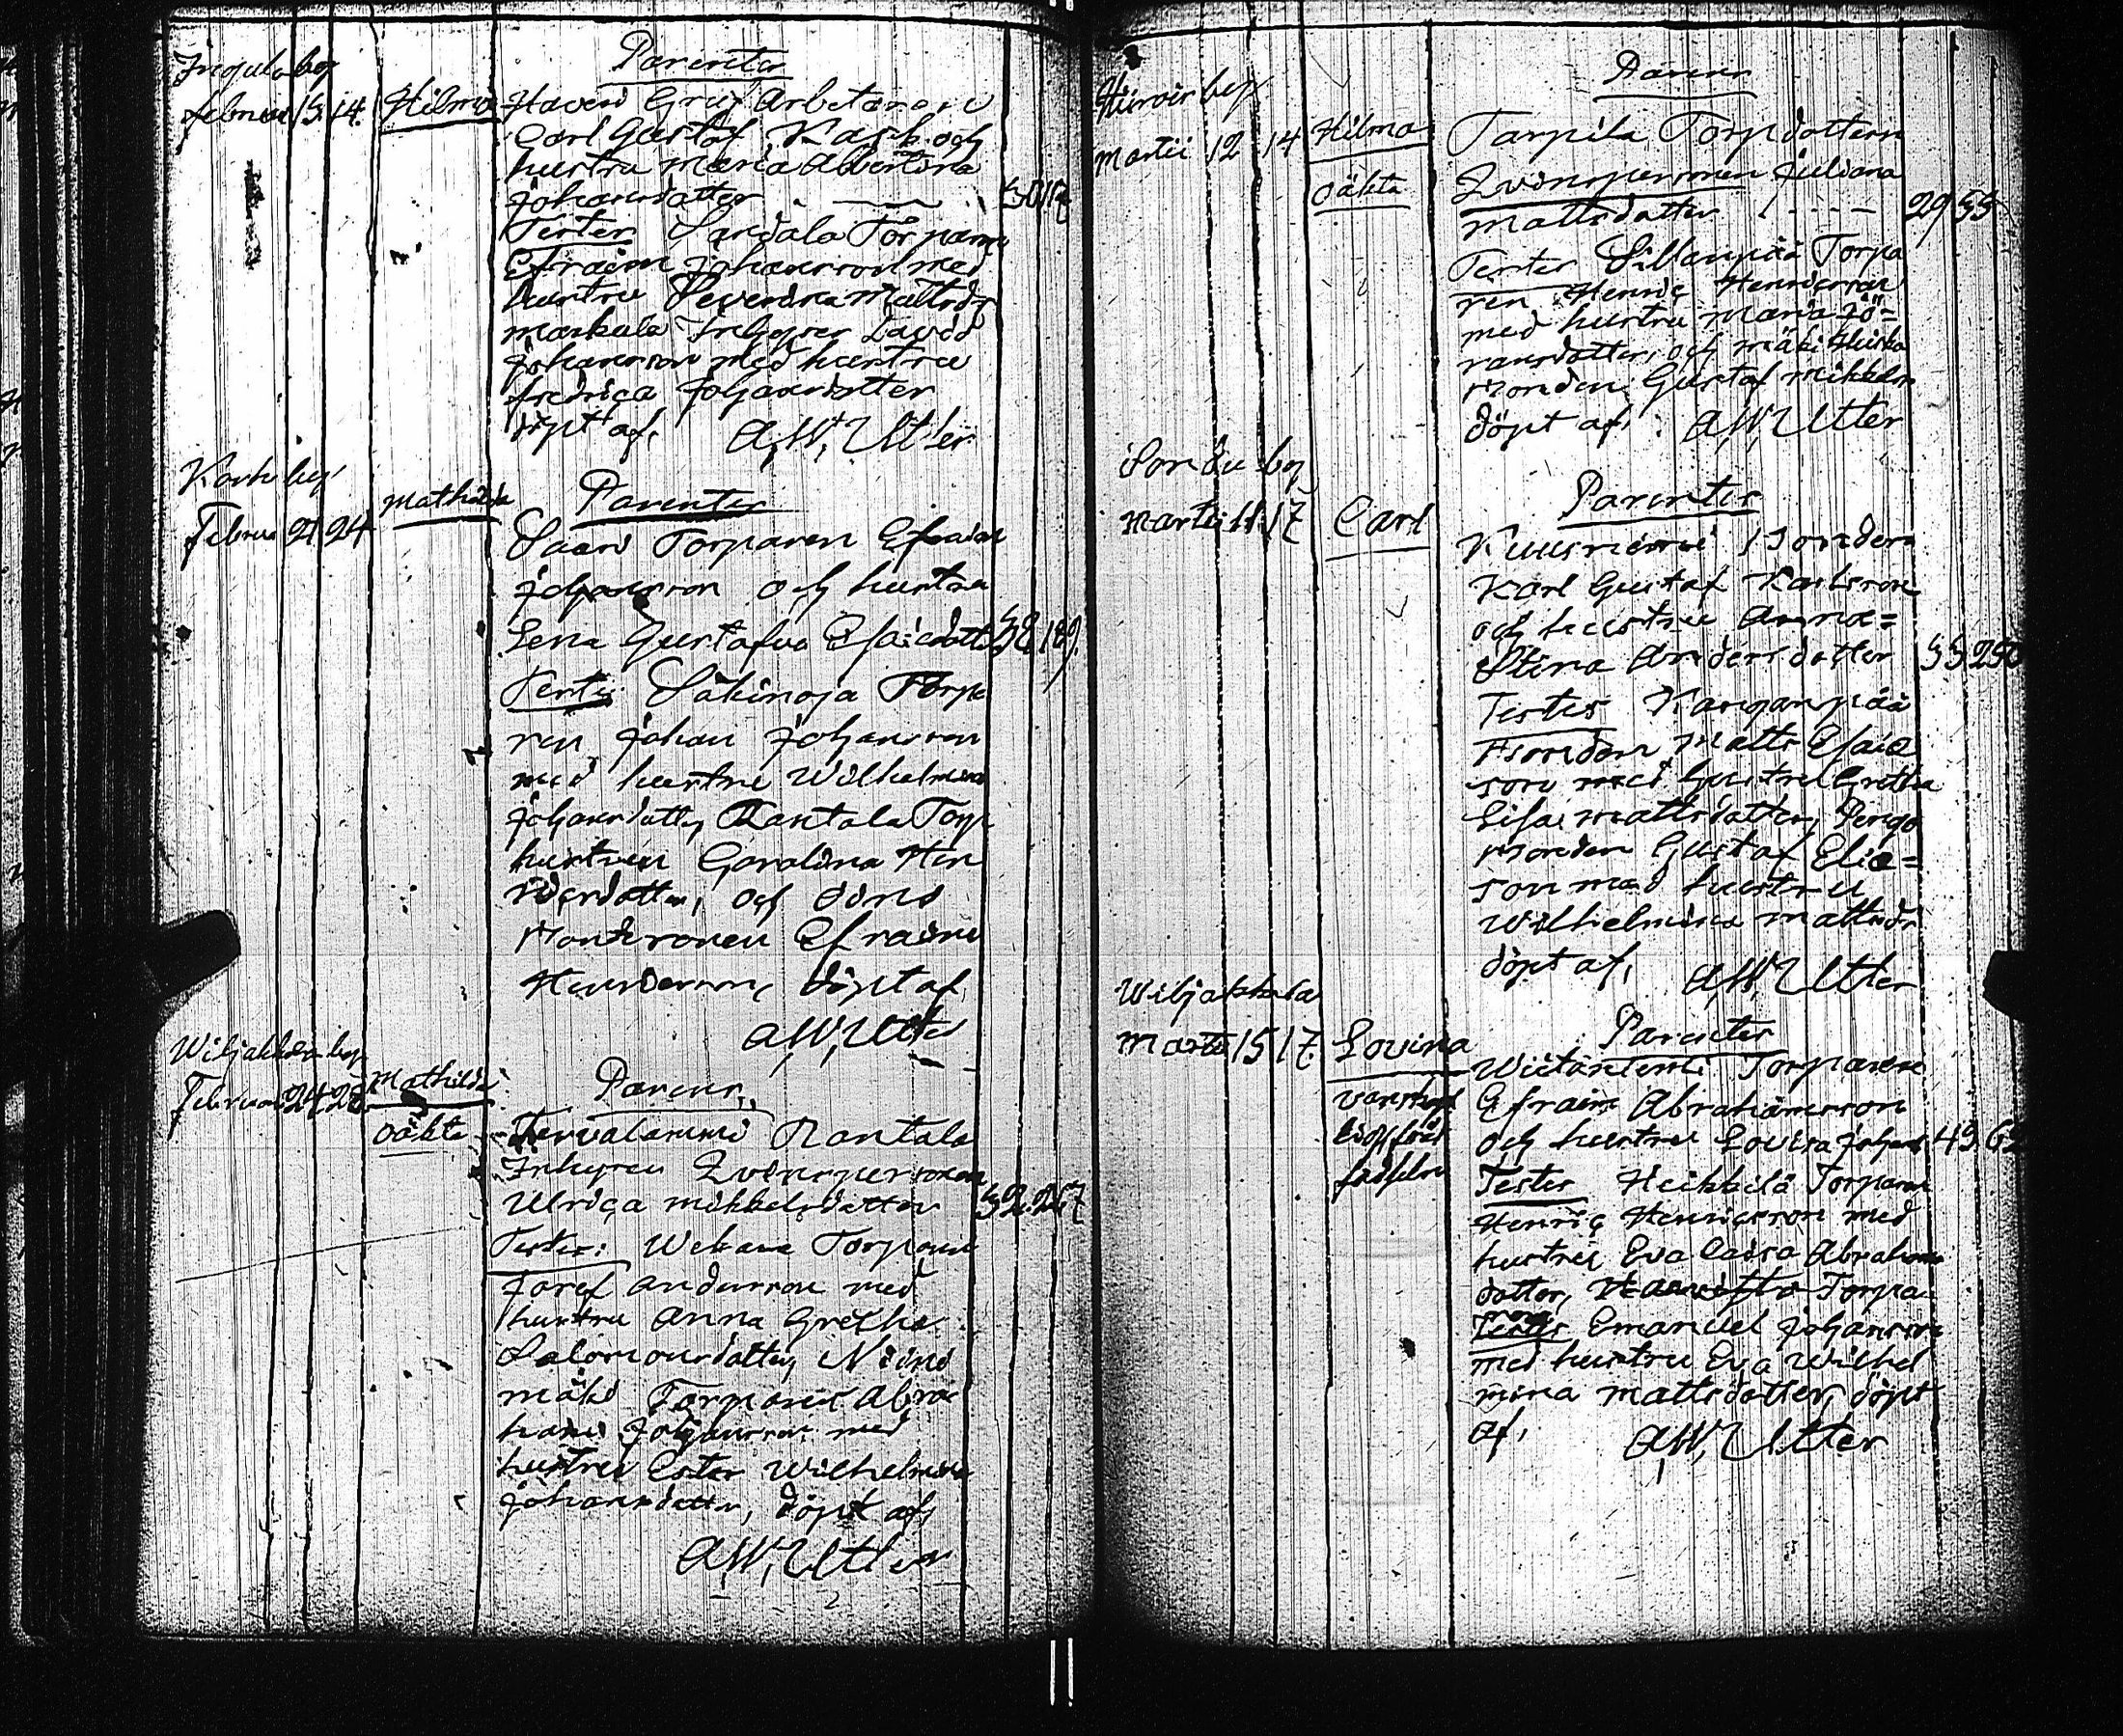 Parentes
Februa 13. 14. Hilma
Haveri Gruf Arbetaren
Carl Gustaf Kask och
hustru Maria Albertina
Johansdotter
Testes Torparen
Efraim Johansson med
hustru Severina Mattsdr
Markula Inhyses David
Johansson med hustru
Fredrica Johansdotter
döpt af, A, W, Utter
Februa 21 24 Mathilda
Parentes
Saari Torparen Efraim
Johansson och hustru
Lena Gustafva Esaiedott 189.
Testes Säkinoja Torpa
ren Johan Johansson
med hustru Wilhelmina
Johansdotter, Rantala Torp
hustrun Carolina Hen
ricsdotter, och
Efraim
döpt af
A, W, Utter
Wiljakkala by
Februa 24 28 Mathilda
oäkta
Parens.
Tervalammi Rantala
Inhyses Qvinspersonen
Ulrica Mikkelsdotter 52. 267
Testes: Torparen
Josef Andersson med
hustru Anna Gretha
Salomonsdotter, Niini
mäki Torparen Abra
ham Johansson med
hustru Ester Wilhelmina
Johansdotter, döpt af,
A, W, Utter
Parens
Martii 12 14 Hilma
oäkta
Tarpila Torpdottern
Qvinspersonen Juliana
Mattsdotter 29 55
Testes Sillanpää Torpa
ren Henric Henricsson
med hustru Maria Jö=
ransdotter, och Mäki
Bonden Gustaf Mikkelss
döpt af, A, W, Utter
Martii 11. 17 Carl
Parentes
Kuusniemi Bonden
Karl Gustaf Karlsson
och hustru Anna=
Stina Andersdotter
Testes Kanganpää
Bonden Matts Esaie
son med hustru Gretha
Lisa Mattsdotter, Pengo
Bonden Gustaf Elia=
son med hustru
Wilhelmina Mattsdr
döpt af, A, W, Utter
Wiljakkala
Martii 15 17. Lovina
Parentes
Torparen
Efraim Abrahamsson
och hustru Lovisa Johans
Testes Heikkilä Torparen
Henric Henricsson med
hustru Eva Caisa Abrahams
dotter, Torpa
Emanuel Johansson
med hustru Eva Wilhel
mina Mattsdotter, döpt
af, A, W, Utter